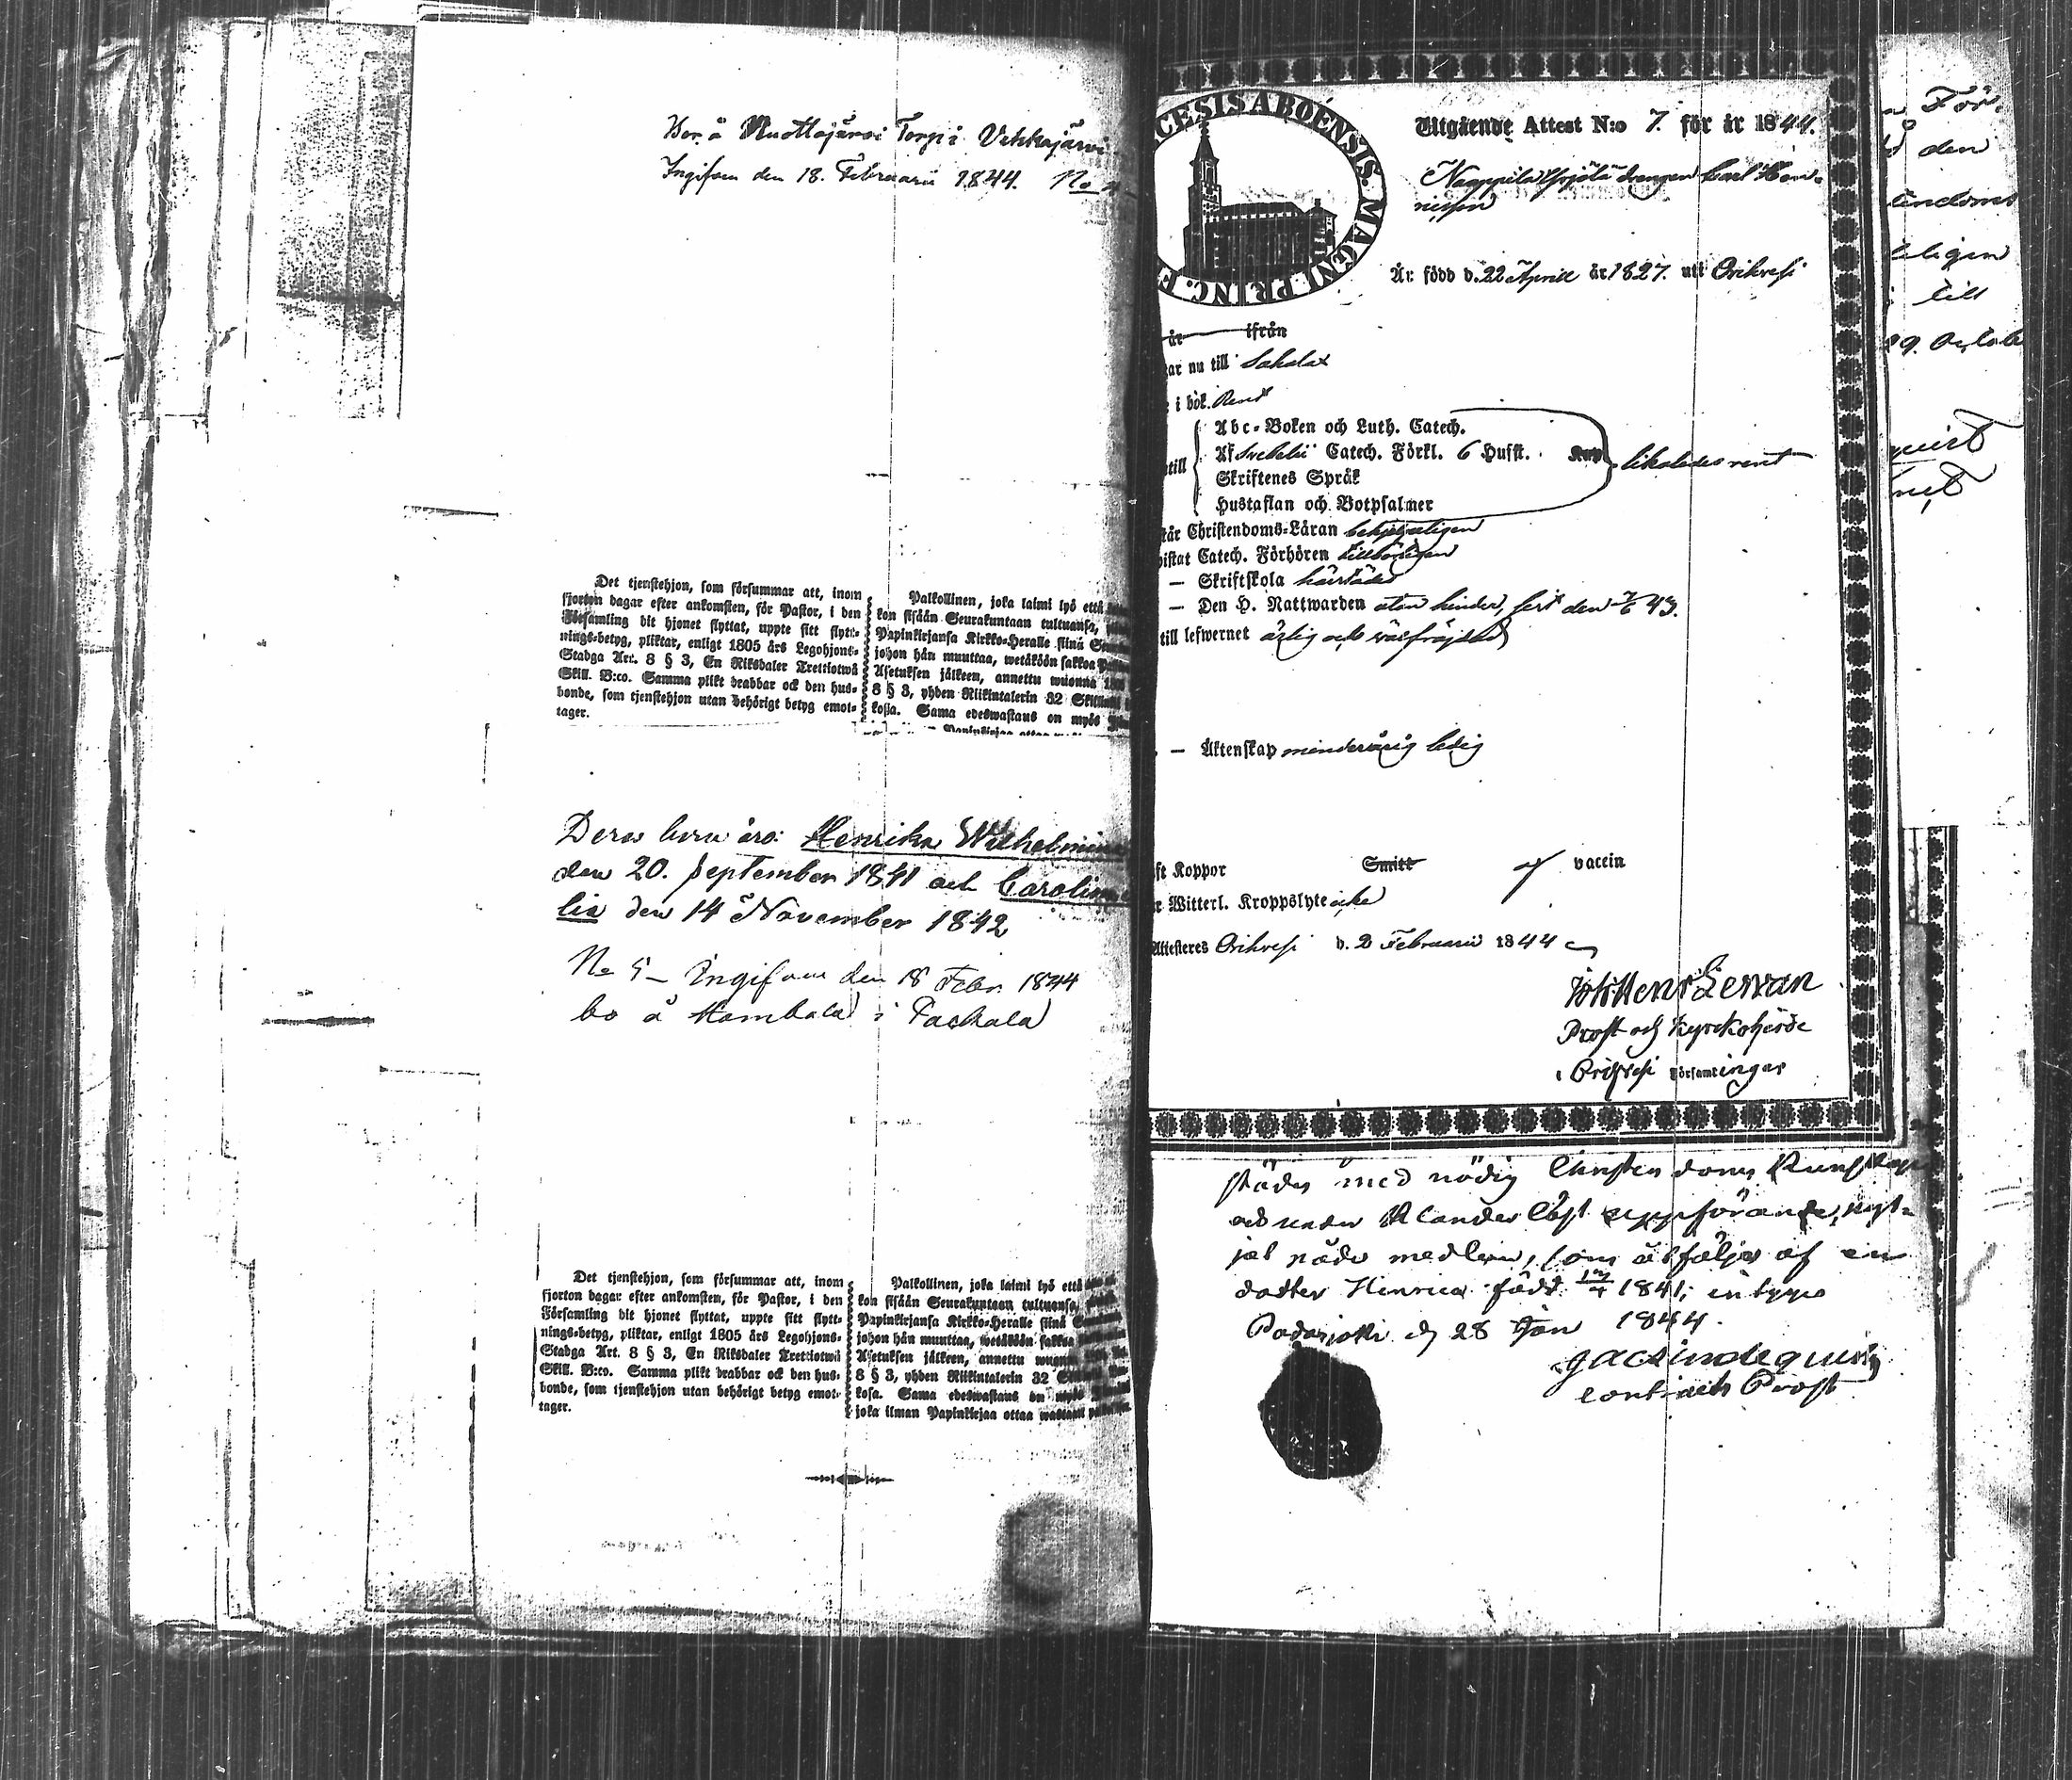 Bor å Ruottajärvi Torp i Vehkajärvi
Ingifven den 18. Februarii 1844. No
Det tjenstehjon, som försummar att, inom
fjorton dagar efter ankomsten, för Pastor, i den
Församling dit hjonet flyttat, uppte sitt flytt-
nings-betyg, pliktar, enligt 1805 års Legohjons-
Stadga Art. 8 § 3, En Riksdaler Trettiotwå
Skill. B:co. Samma plikt drabbar ock den hus-
bonde, som tjenstehjon utan behörigt betyg emot-
tager.
Palkollinen, joka laimi lyö että
kon sisään Seurakuntaan tultuansa,
Papinkirjansa Kirkko-Heralle siinä
johon hän muuttaa, wetäköön sakkoa
Asetuksen jälkeen, annettu wuonna
8 § 3, yhden Riikintalerin 32 Skillinki
koßa. Sama edeswastaus on myös
Papinkirjaa ottaa
Deras barn äro: Henrika Wilhelmina
den 20. September 1841 och Carolina
lia den 14 November 1842
No 5 – Ingifven den 18 Febr. 1844
bo å i
Det tjenstehjon, som försummar att, inom
fjorton dagar efter ankomsten, för Pastor, i den
Församling dit hjonet flyttat, uppte sitt flytt-
nings-betyg, pliktar, enligt 1805 års Legohjons-
Stadga Art. 8 § 3, En Riksdaler Trettiotwå
Skill. B:co. Samma plikt drabbar ock den hus-
bonde, som tjenstehjon utan behörigt betyg emot-
tager.
Palkollinen, joka laimi lyö että
kon sisään Seurakuntaan tultuansa,
Papinkirjansa Kirkko-Heralle siinä
johon hän muuttaa, wetäköön sakkoa
Asetuksen jälkeen, annettu
8 § 3, yhden Riikintalerin 32
kosa. Sama edeswastaus on myös
joka ilman Papinkirjaa ottaa wastaan
CESIS ABOËNSIS. MAGNI PRINC. F
Utgående Attest N:o 7. för år 1844.
drengen Carl Hen-
ricsson
Är född d. 22 April år 1827. uti Orihvesi
år ifrån
ar nu till Sahalax
i bok. Rent
Abc-Boken och Luth. Catech.
Af Svebilii Catech. Förkl. 6 Hufst. Kap. likaledes rent
till Skriftenes Språk
Hustaflan och Botpsalmer
tår Christendoms-Läran behjelpeligen
istat Catech. Förhören tillbörligen
– Skriftskola härstädes
– Den H. Nattwarden utan hinder, sist den 43.
till lefwernet ärlig och välfräjdad
– Äktenskap minderårig ledig
ft Koppor Smitt af vaccin
r Witterl. Kroppslyte icke
Attesteres Orihvesi d. 2 Februarii 1844
Henr Lervan
Prost och Kyrkoherde
i Orihvesi Församlingar
städes med nödig Christendoms Kunskap
och under uppförande, nyt-
jat nåde medlen, som åtföljes af en
dotter Henrica född 1841; intygas
Padasjoki d 28 Jan 1844.
Lindequist
contracts Prost
För
den
endoms
eligen
till
29. Octob
quist